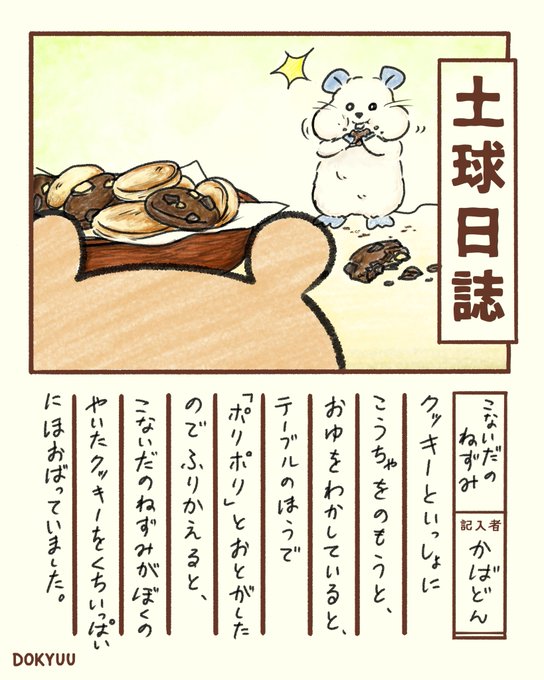 土球日誌
こないだの
ねずみ
記入者
かばどん
クッキーといっしょに
こうちゃをのもうと、
おゆをわかしていると、
テーブルのほうで
「ポリポリ」とおとがした
のでふりかえると、
こないだのねずみがぼくの
やいたクッキーをくちいっぱい
にほおばっていました。
DOKYUU